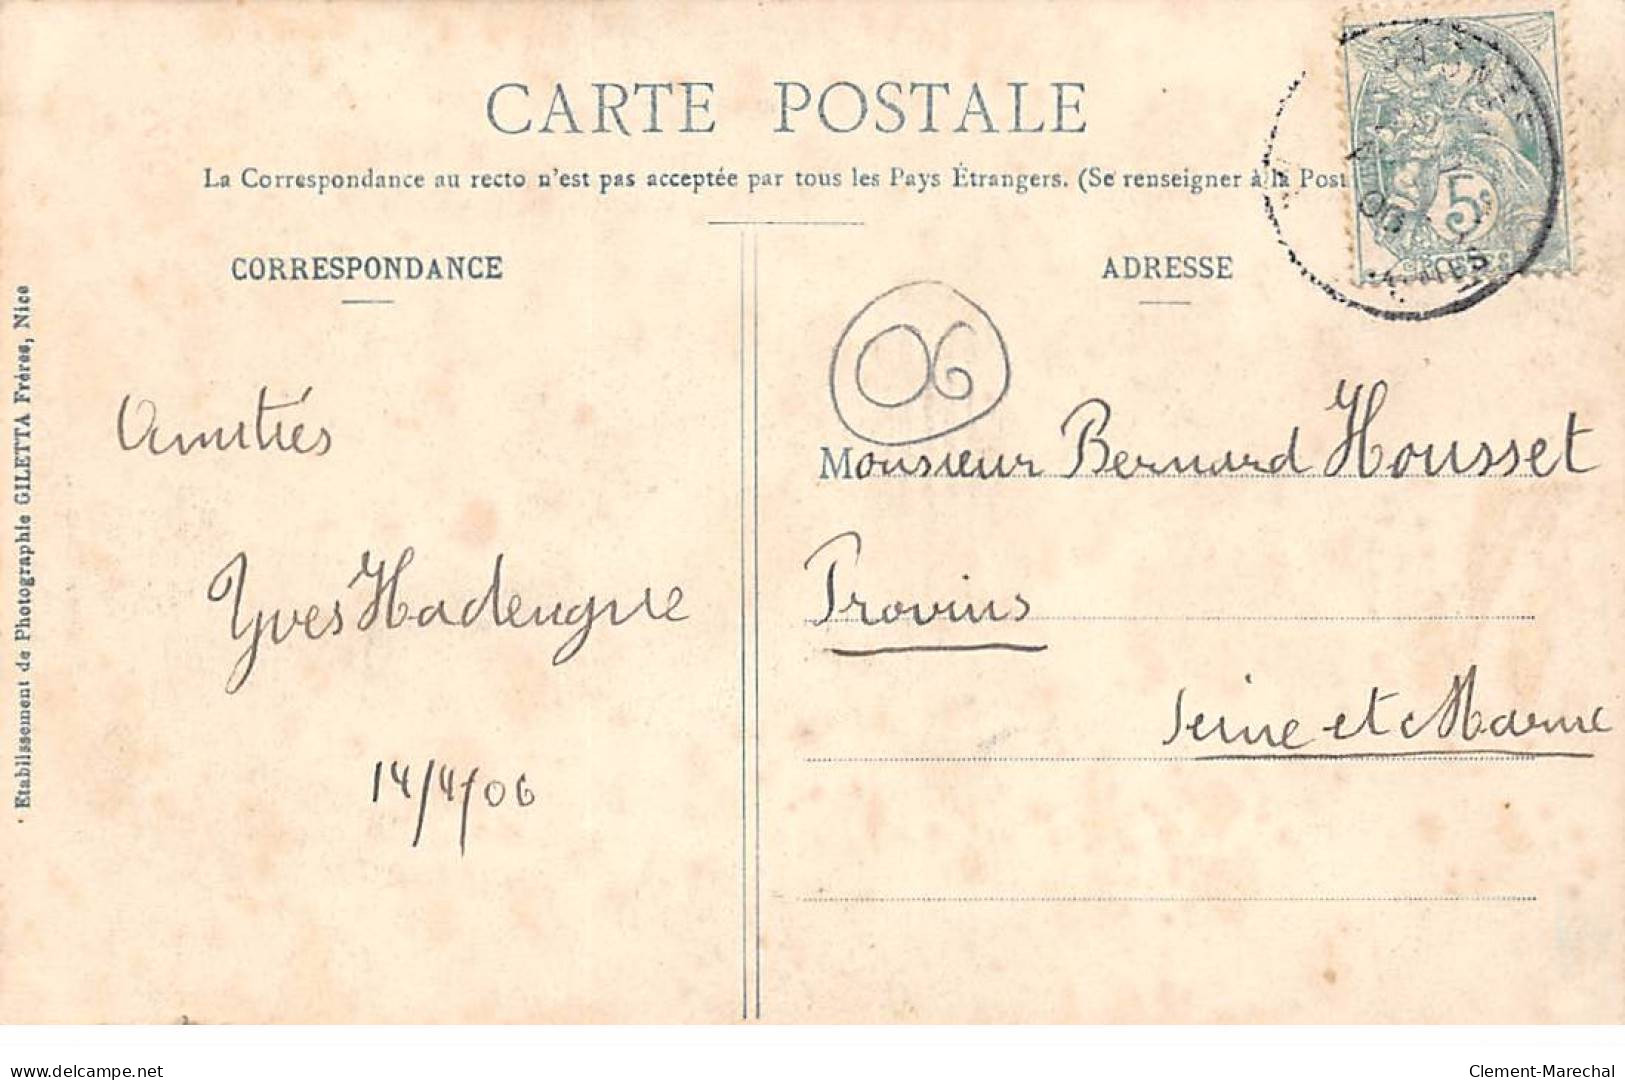 CARTE POSTALE
La Correspondance au recto n'est pas acceptée par tous les Pays Étrangers. (Se renseigner à la Post
CORRESPONDANCE
ADRESSE
5c
POSTES
06
Etablissement de Photographie GILETTA Frères, Nice
Amitiés
Yves Hadengue
14/4/06
Monsieur Bernard Housset
Provins
Seine et Marne
delcampe.net
Clement-Marechal